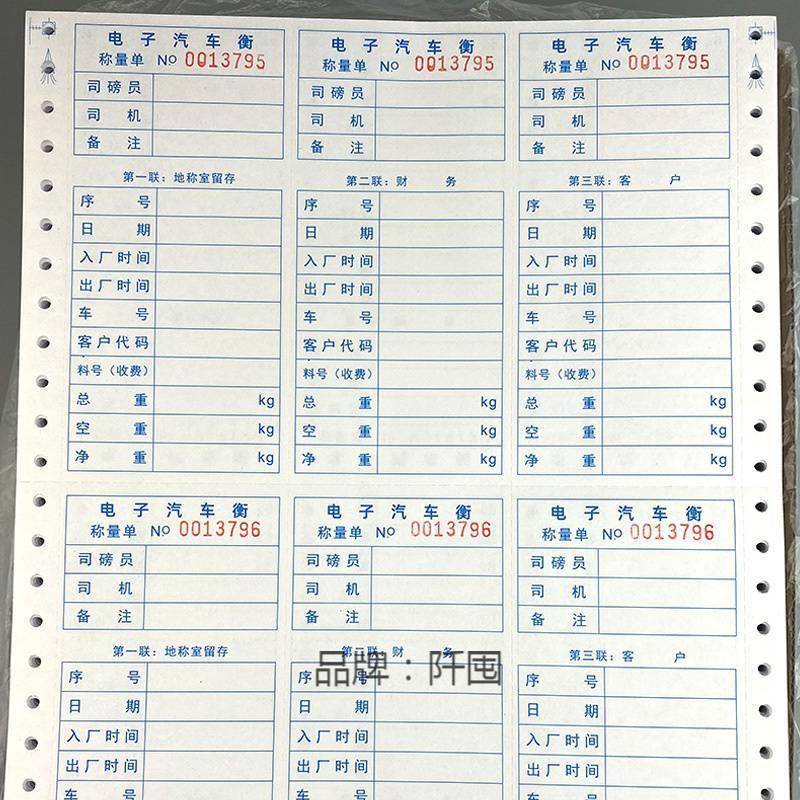 电子汽车衡
称量单 No 0013795
司磅员
司机
备注
第一联：地称室留存
序号
日期
入厂时间
出厂时间
车号
客户代码
料号（收费）
总重 kg
空重 kg
净重 kg
电子汽车衡
称量单 No 0013795
司磅员
司机
备注
第二联：财务
序号
日期
入厂时间
出厂时间
车号
客户代码
料号（收费）
总重 kg
空重 kg
净重 kg
电子汽车衡
称量单 No 0013795
司磅员
司机
备注
第三联：客户
序号
日期
入厂时间
出厂时间
车号
客户代码
料号（收费）
总重 kg
空重 kg
净重 kg
电子汽车衡
称量单 No 0013796
司磅员
司机
备注
第一联：地称室留存
序号
日期
入厂时间
出厂时间
车号
电子汽车衡
称量单 No 0013796
司磅员
司机
备注
第二联：财务
品牌：阡囤
序号
日期
入厂时间
出厂时间
车号
电子汽车衡
称量单 No 0013796
司磅员
司机
备注
第三联：客户
序号
日期
入厂时间
出厂时间
车号